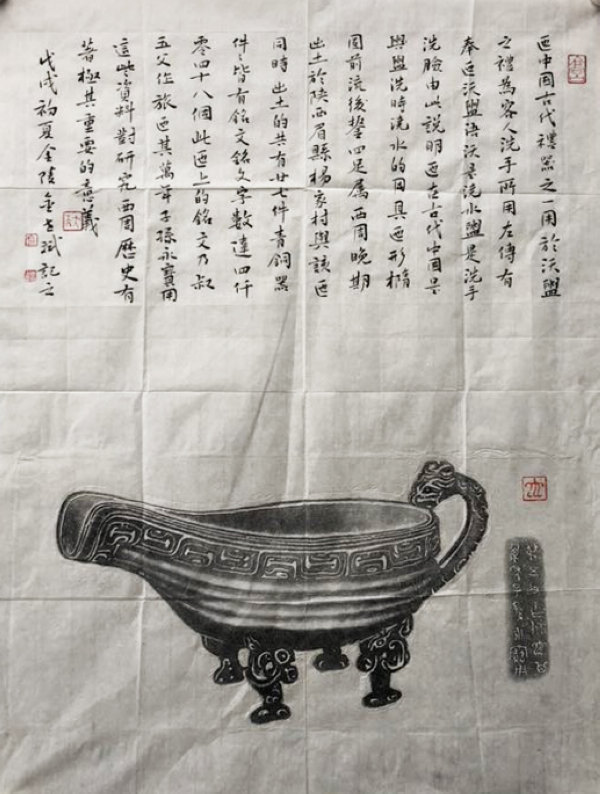 匜中國古代禮器之一用於沃盥
之禮為客人洗手所用左傳有
奉匜沃盥語沃是澆水盥是洗手
洗臉由此説明匜在古代中國是
與盥洗時澆水的用具匜形橢
圓前流後鋬四足屬西周晚期
出土於陝西眉縣楊家村與該匜
同時出土的共有廿七件青銅器
件々皆有銘文銘文字數達四仟
零四十八個此匜上的銘文乃叔
五父作旅匜其萬年子孫永寶用
這些資料對研究西周歷史有
著極其重要的意義
戊戌初夏金陵金斌記之